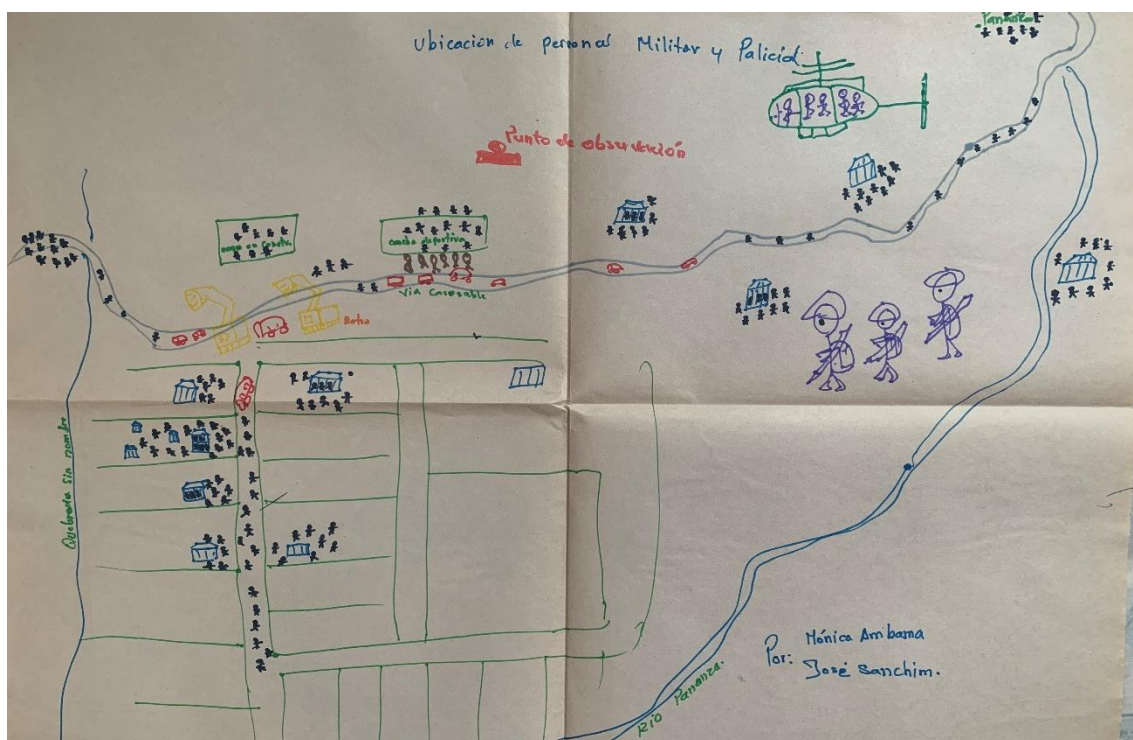 Ubicación de personal Militar y Palicial
Pananza
Punto de observación
cancha deportiva
Via Carrosable
Quebrada Sin nombre
Río Pananza
Por: Mónica Ambama
José Sanchim.